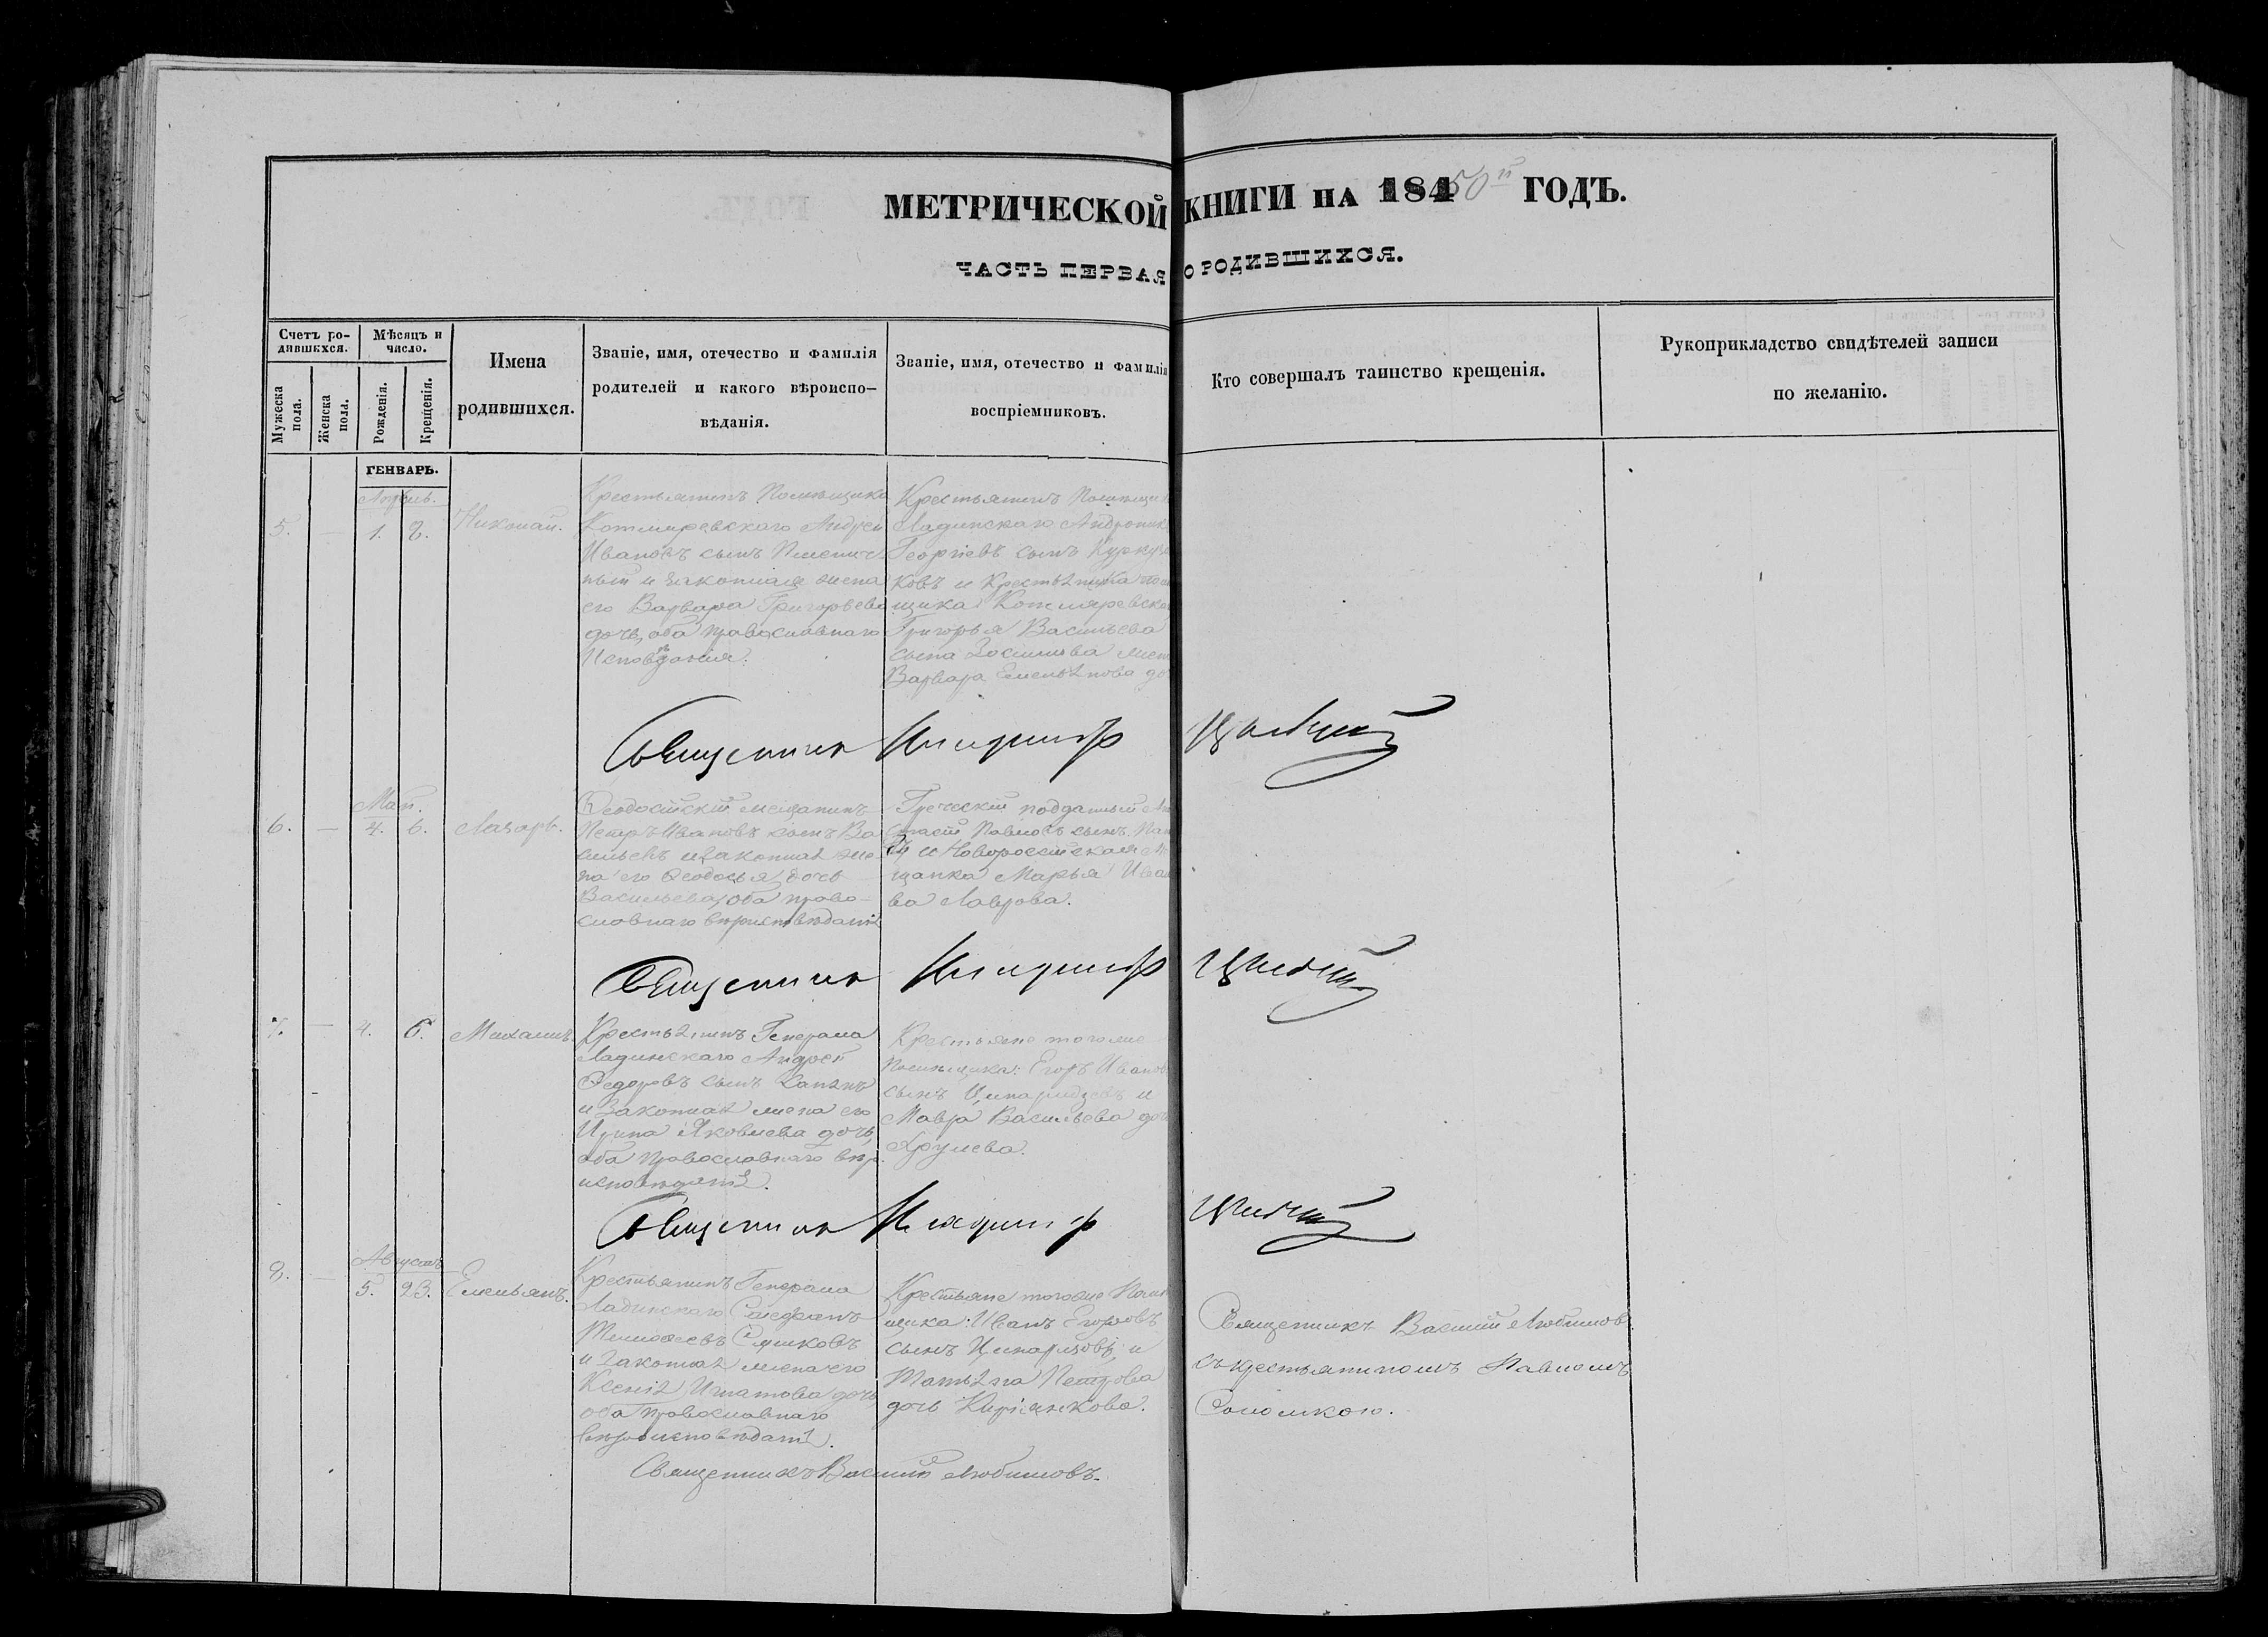 МЕТРИЧЕСКОЙ КНИГИ НА 184 50й ГОДЪ.
ЧАСТЬ ПЕРВАЯ О РОДИВШИХСЯ.
Счетъ ро-
дившихся.
Мѣсяцъ и
число.
Мужеска
пола.
Женска
пола.
Рожденія.
Крещенія.
Имена
родившихся.
Званіе, имя, отечество и фамилія
родителей и какого вѣроиспо-
вѣданія.
Званіе, имя, отечество и фамилія
воспріемниковъ.
Кто совершалъ таинство крещенія.
Рукоприкладство свидѣтелей записи
по желанію.
ГЕНВАРЬ.
Апрѣль.
5. — 1. 2. Николай.
Крестьянинъ Помѣщика
Котляревскаго Андрей
Ивановъ сынъ Пшенич
ный и законная жена
его Варвара Григорьева
дочь, оба православнаго
Исповѣданія.
Крестьянинъ Помѣщи
Ладинскаго Андроник
Георгіевъ сынъ
ковъ и Крестьянка по
щика Котляревска
Григорья Васильева
сына жен
Варвара Емельянова до
Священник
Май.
6. — 4. 6. Лазарь.
Ѳеодосійскій мещанинъ
Петръ Ивановъ сынъ Ва
сильевъ и законная же
на его Ѳеодосья дочь
Васильева, оба право-
славнаго вѣроисповѣданія
Греческій подданный
Павловъ сынъ
и Новоросійская М
щанка Марья Иван
ва Лаврова.
Священник
7. — 4. 6. Михаилъ.
Крестьянинъ Генерала
Ладинскаго Андрей
Ѳедоровъ сынъ
и Законная жена его
Ирина Яковлева дочь,
оба Православнаго вѣр.
исповѣданія.
Крестьяне тогоже
Помѣщика: Егоръ Иванов
сынъ и
Мавра Васильева доч
Хрулева.
Священник
Августъ
8. — 5. 23. Емельянъ.
Крестьянинъ Генерала
Ладинскаго Стефанъ
Тимофеевъ
и законная жена его
Ксенія Игнатова дочь,
оба православнаго
вѣроисповѣданія.
Крестьяне тогоже Помѣ
щика: Иванъ Егоровъ
сынъ и
Татьяна Петрова
дочь Кирiянкова.
Священникъ Василій Любимовъ
съ крестьяниномъ Павломъ
Соломкою.
Священникъ Василій Любимовъ.